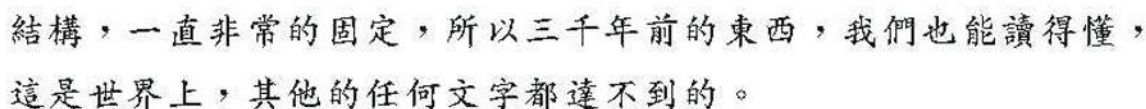 結構，一直非常的固定，所以三千年前的東西，我們也能讀得懂，
這是世界上，其他的任何文字都達不到的。